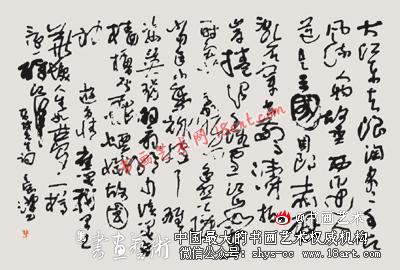 大江东去浪淘尽千古
风流人物故垒西边人
道是三國周郎赤壁
乱石穿空惊涛拍
岸捲起千堆雪江山如画
一时多少豪杰遥想公瑾
当年小乔初嫁了雄
姿英发羽扇纶巾谈笑间
樯橹灰飞烟灭故國
神游多情应笑我早
华发人生如梦一樽
还酹江月
书画艺术网18art.com
@书画艺术
书画艺术
中国最大的书画艺术权威机构
微信公众号：shys-cc www.18art.com